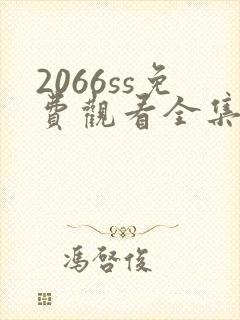 2066ss免
費觀看全集
馮啓俊